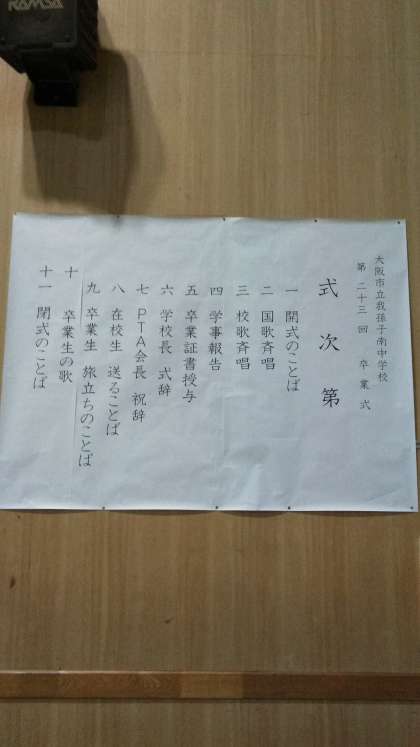 RAMSA
大阪市立我孫子南中学校
第 二十三 回 卒業式
式次第
一 開式のことば
二 国歌斉唱
三 校歌斉唱
四 学事報告
五 卒業証書授与
六 学校長 式辞
七 PTA会長 祝辞
八 在校生 送ることば
九 卒業生 旅立ちのことば
十 卒業生の歌
十一 閉式のことば